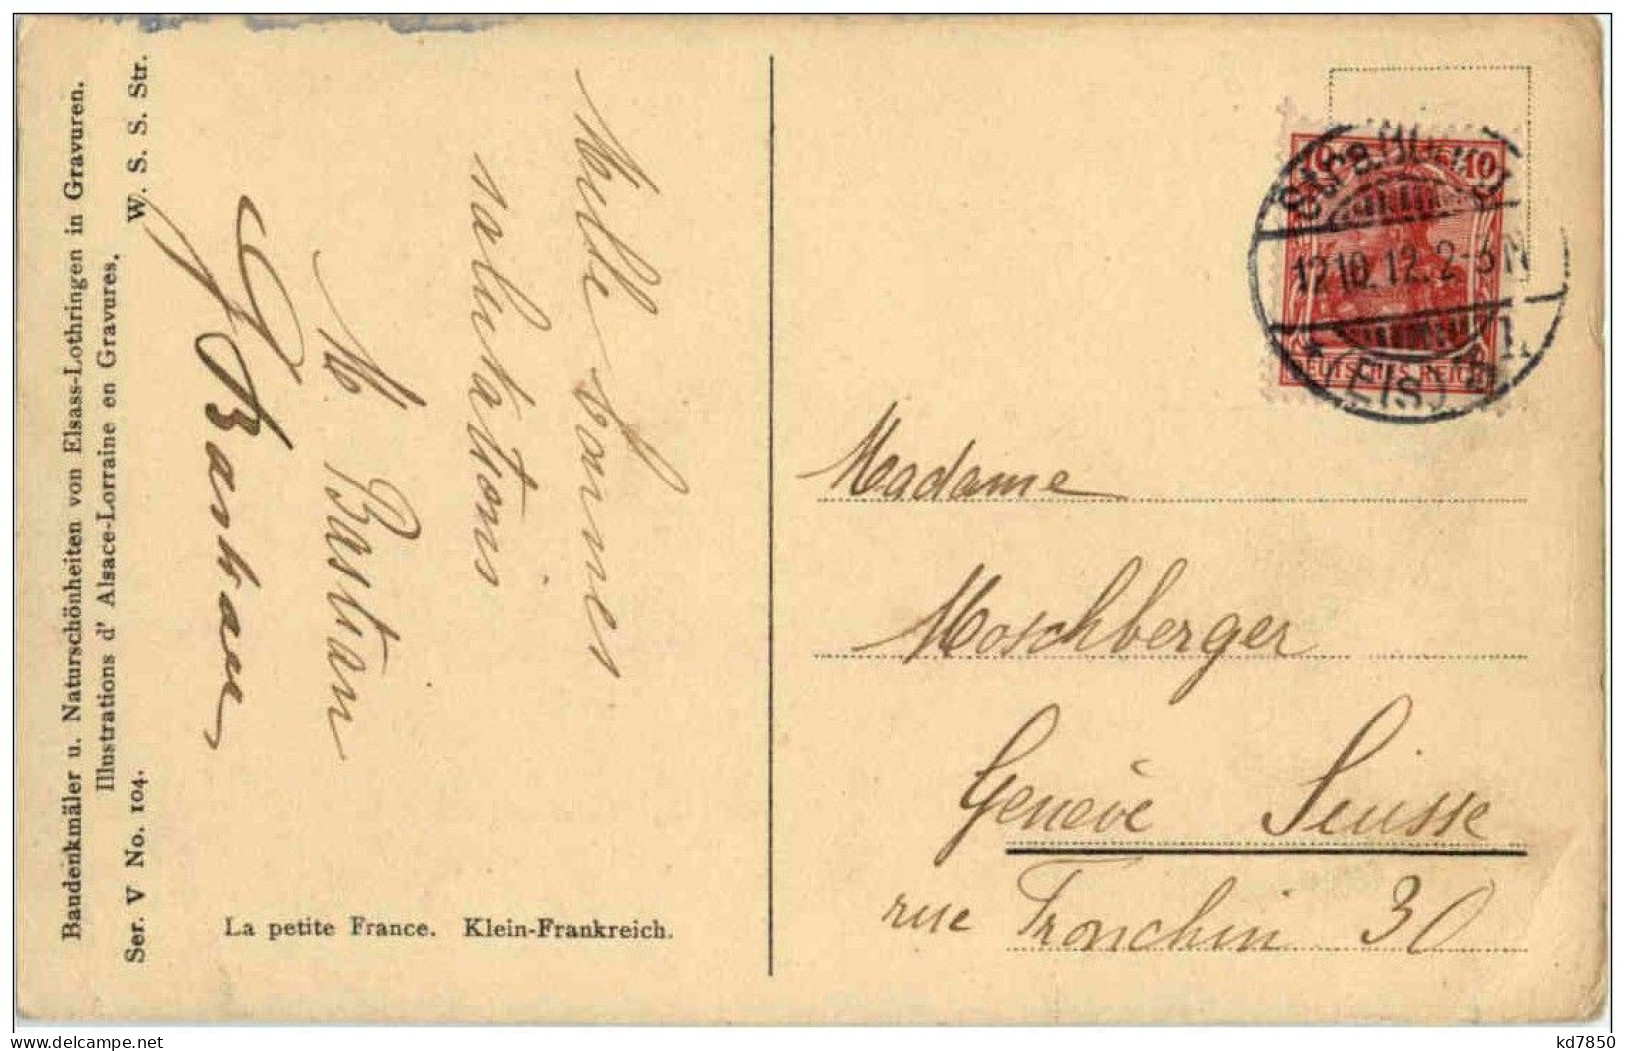 Baudenkmäler u. Naturschönheiten von Elsass-Lothringen in Gravuren.
Illustrations d' Alsace-Lorraine en Gravures.
Ser. V No. 104.
W. S. S. Str.
Mille bonnes
salutations
M Bastian
La petite France. Klein-Frankreich.
10 10
DEUTSCHES REICH
12.10.12. 2-3N
(Els)
Madame
Moschberger
Genève Suisse
rue Tronchin 30
kd7850